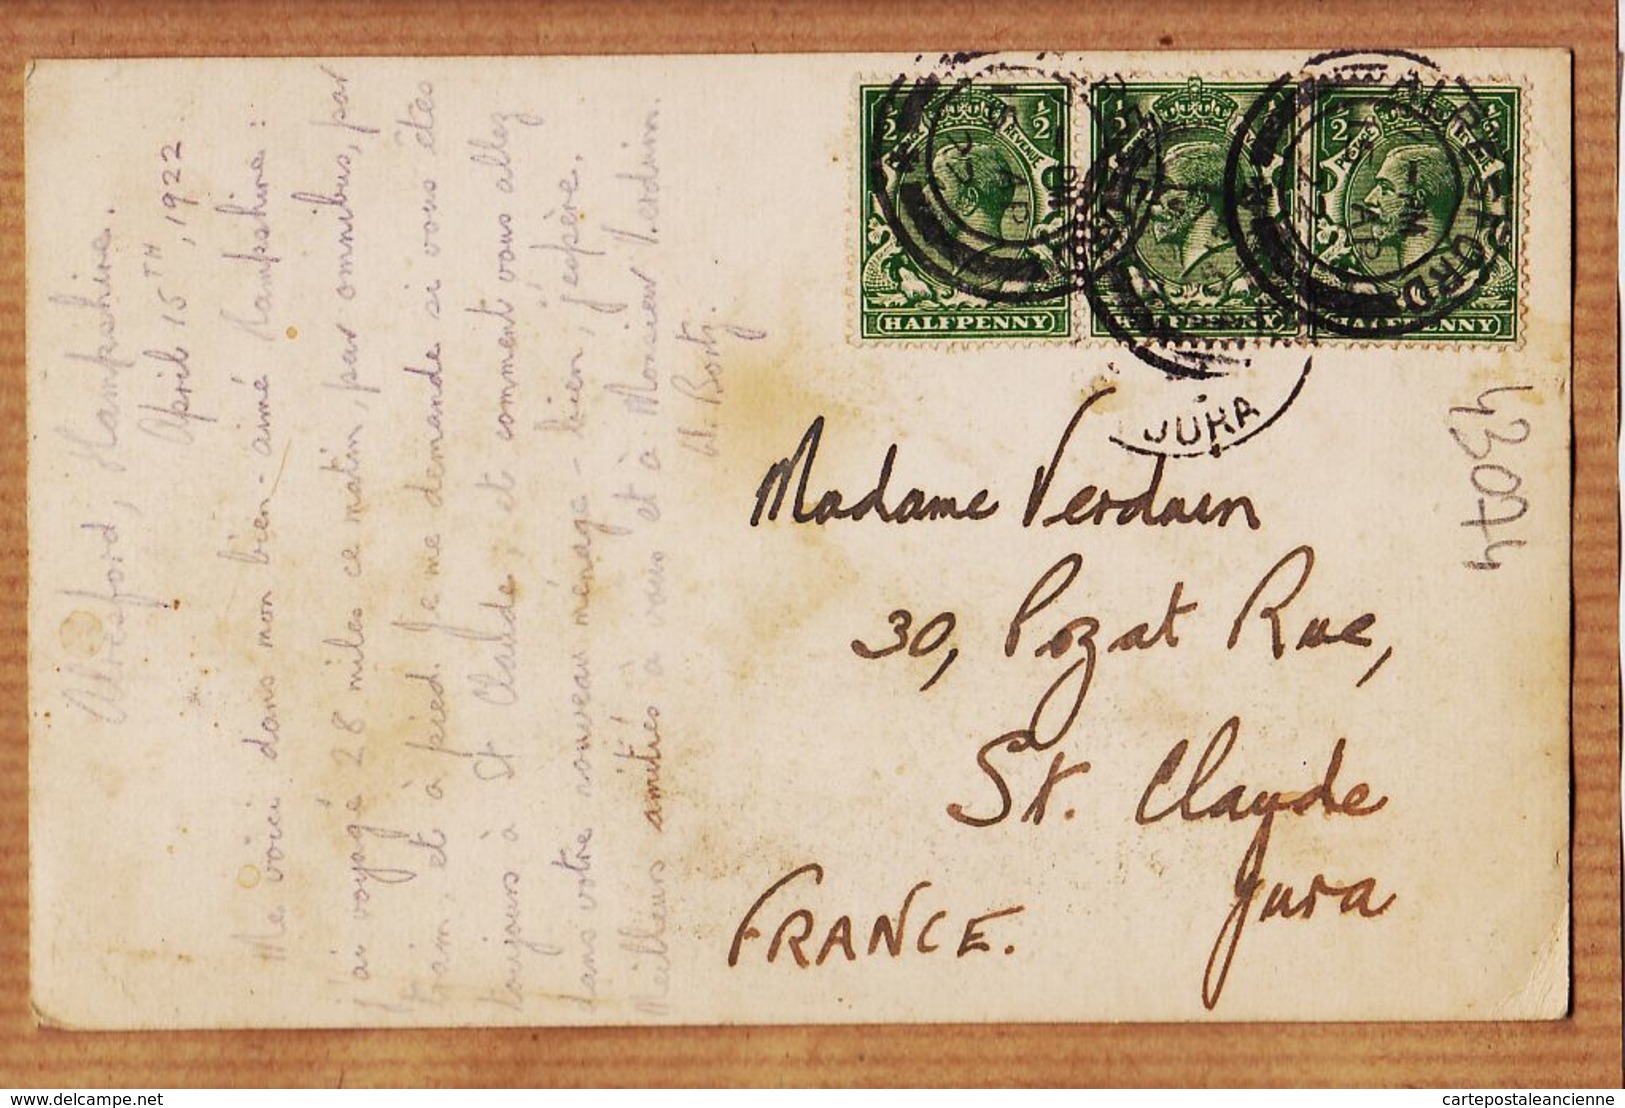 Alresford, Hampshire.
April 15TH, 1922
Me voici dans mon bien-aimé Hampshire :
j'ai voyagé 28 miles ce matin, par omnibus, par
train, et à pied. Je me demande si vous êtes
toujours à St Claude, et comment vous allez
dans votre nouveau ménage - bien, j'espère.
Meilleurs amitiés à vous et à Monsieur Verduin.
½ ½
POSTAGE REVENUE
HALFPENNY
½ ½
HALFPENNY
½ ½
POSTAGE REVENUE
HALFPENNY
ALRESFORD
AP
22
JURA
43074
Madame Verduin
30, Pozat Rue,
St. Claude
Jura
FRANCE.
www.delcampe.net
cartepostaleancienne